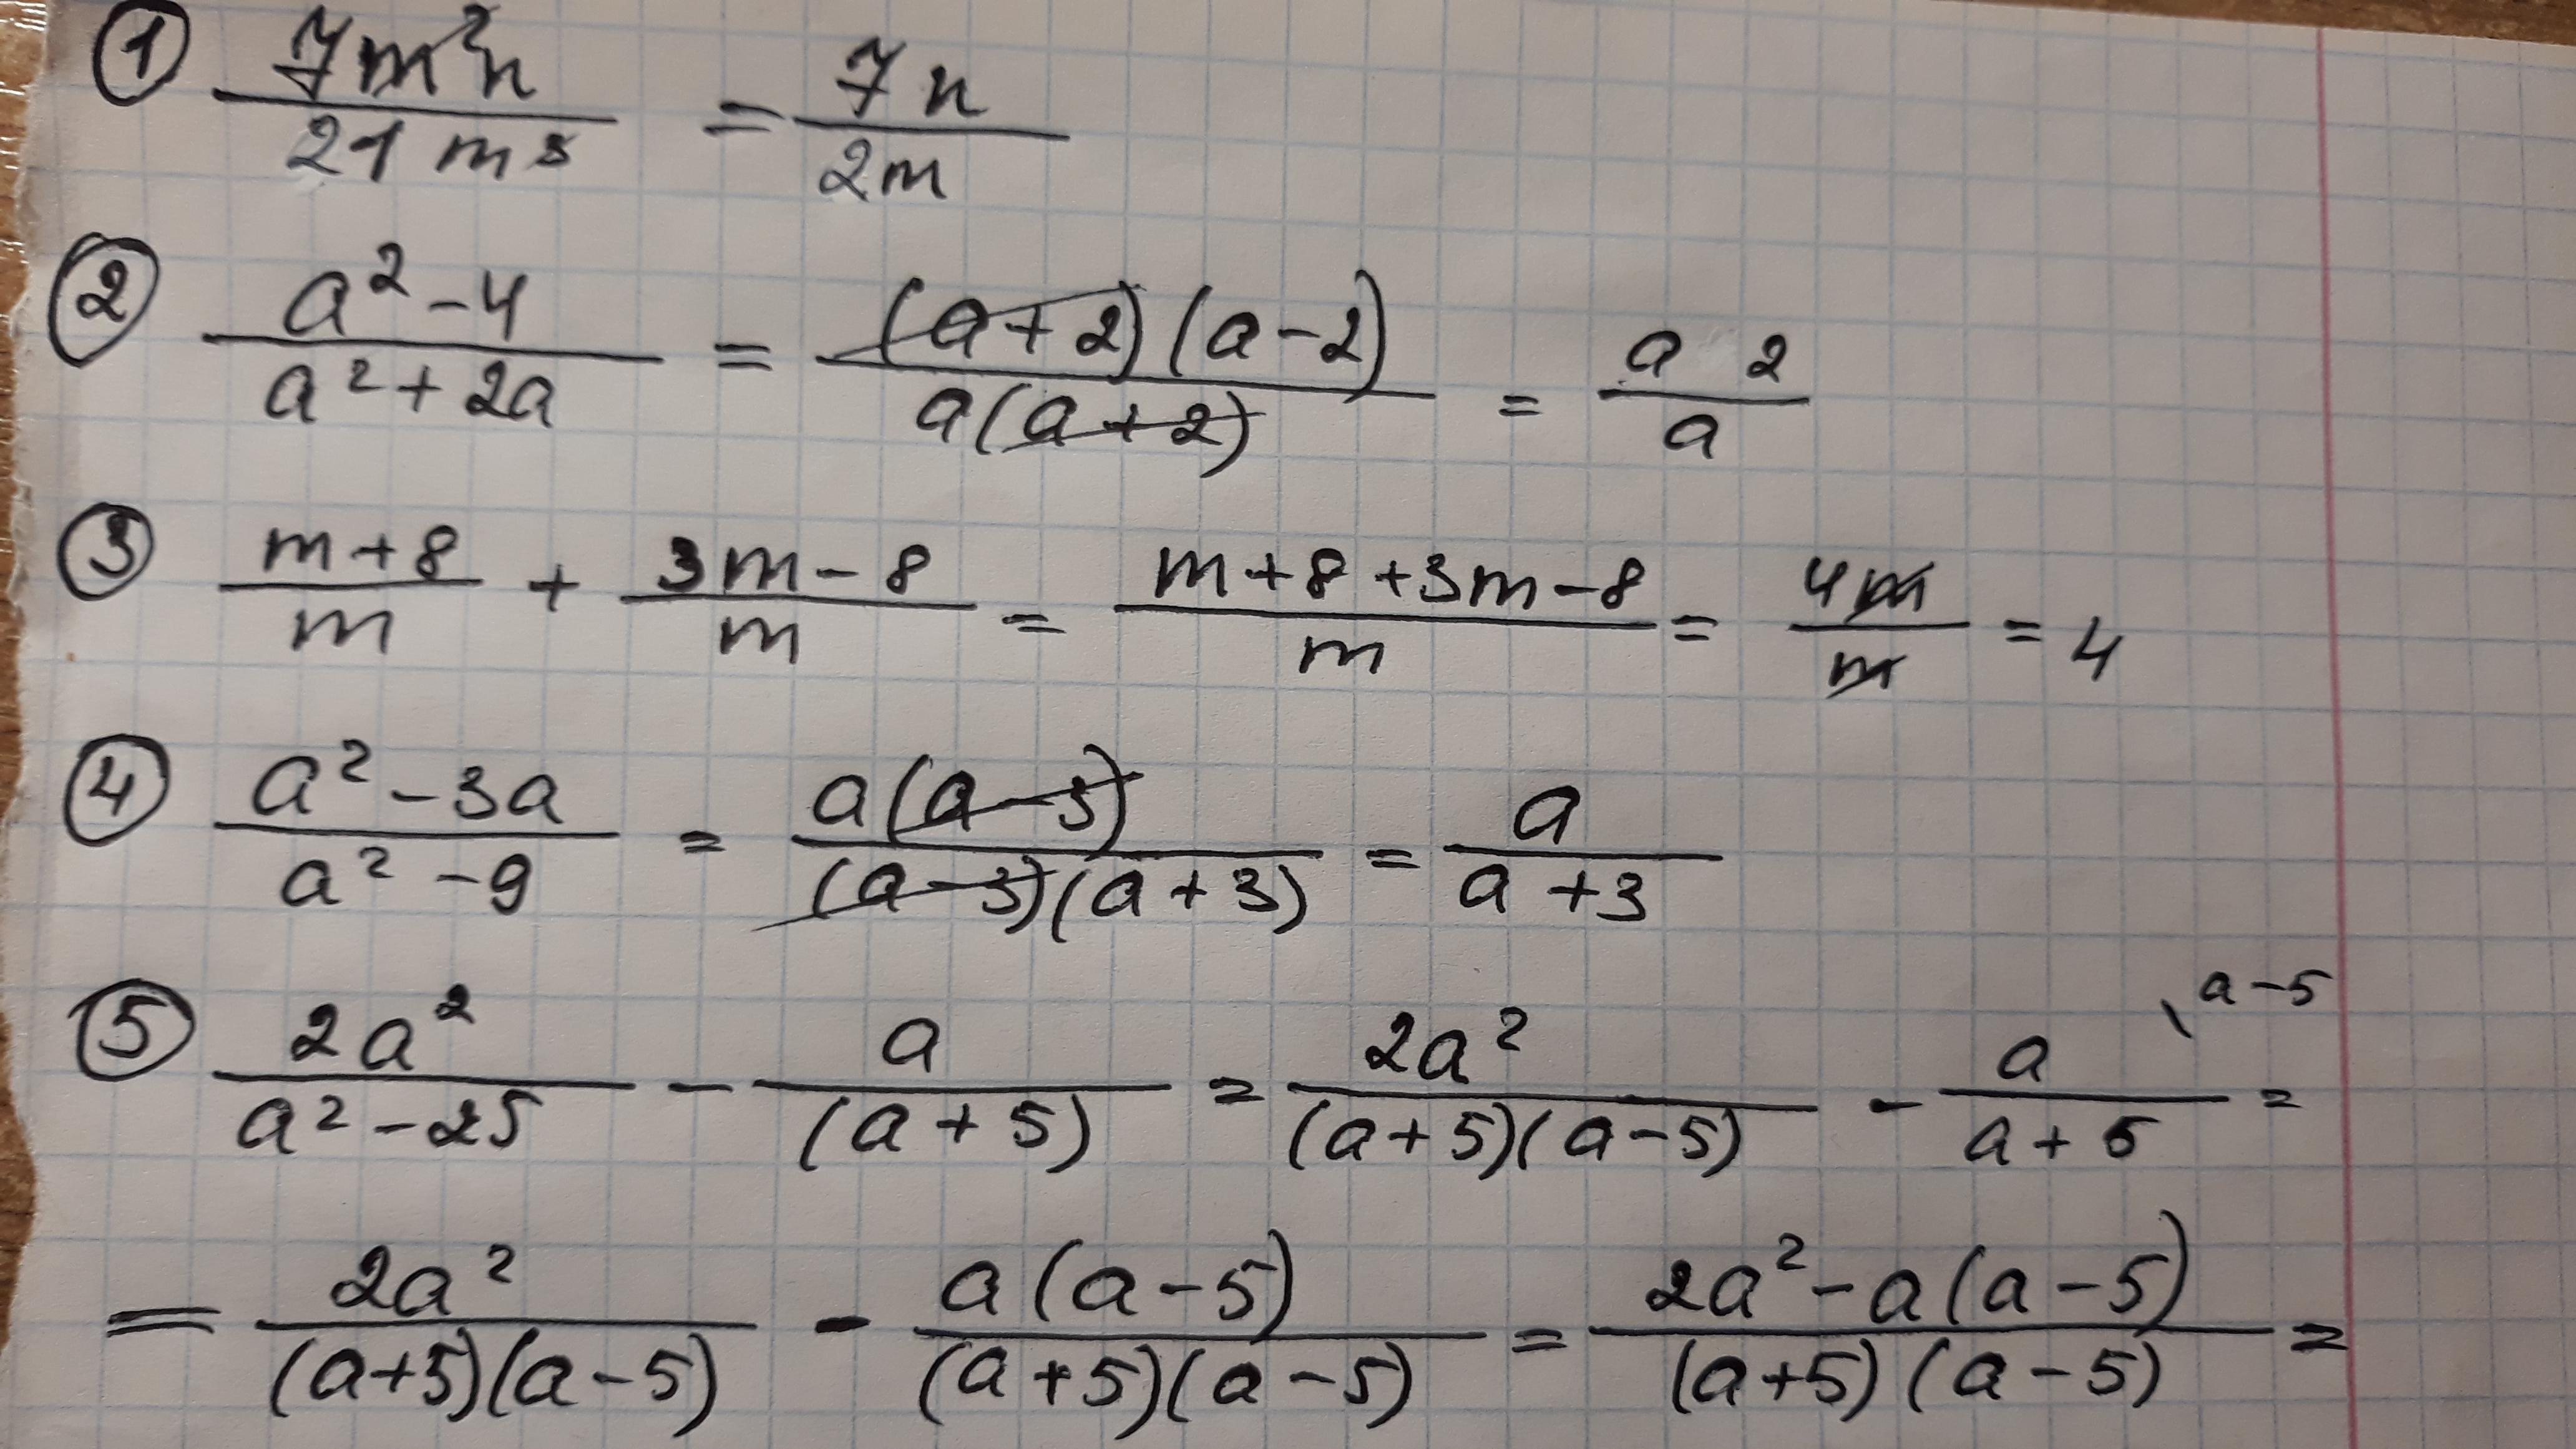 ① 7m²n / 21 m³ = 7n / 2m
② (a² - 4) / (a² + 2a) = (a+2)(a-2) / a(a+2) = a 2 / a
③ (m+8) / m + (3m-8) / m = (m+8+3m-8) / m = 4m / m = 4
④ (a² - 3a) / (a² - 9) = a(a-3) / (a-3)(a+3) = a / (a+3)
⑤ 2a² / (a² - 25) - a / (a+5) = 2a² / (a+5)(a-5) - a / (a+5) \ a-5 =
= 2a² / (a+5)(a-5) - a(a-5) / (a+5)(a-5) = (2a² - a(a-5)) / (a+5)(a-5) =